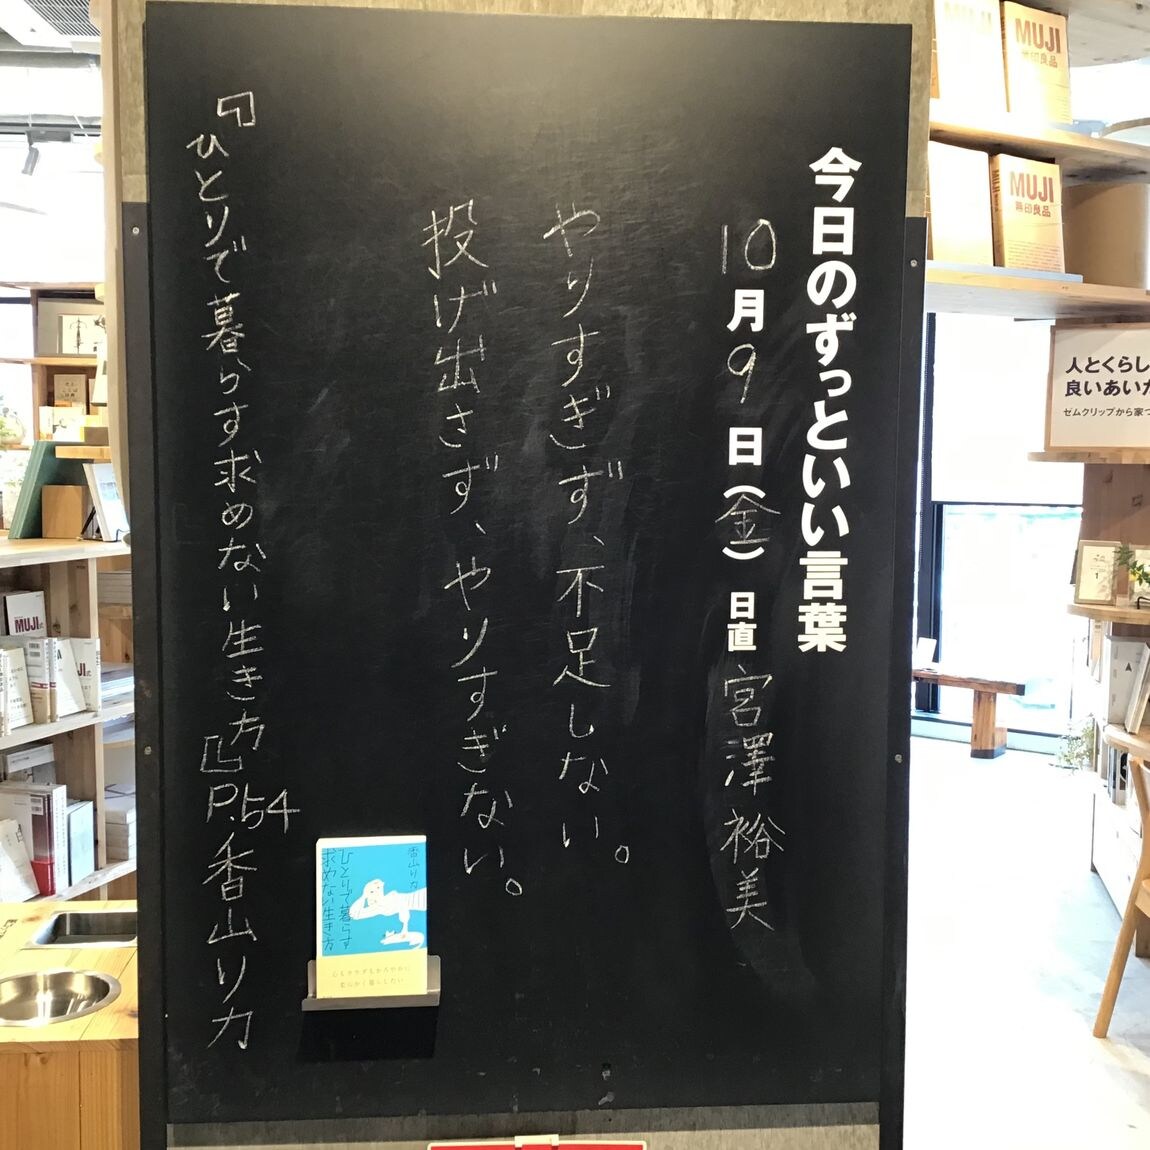 今日のずっといい言葉
10月9日(金) 日直 宮澤裕美
やりすぎず、不足しない。
投げ出さず、やりすぎない。
『ひとりで暮らす求めない生き方』P.54 香山リカ
香山リカ
ひとりで暮らす
求めない生き方
MUJI
無印良品
MUJI
無印良品
MUJI
人とくらし
良いあいか
ゼムクリップから家つ
MUJI